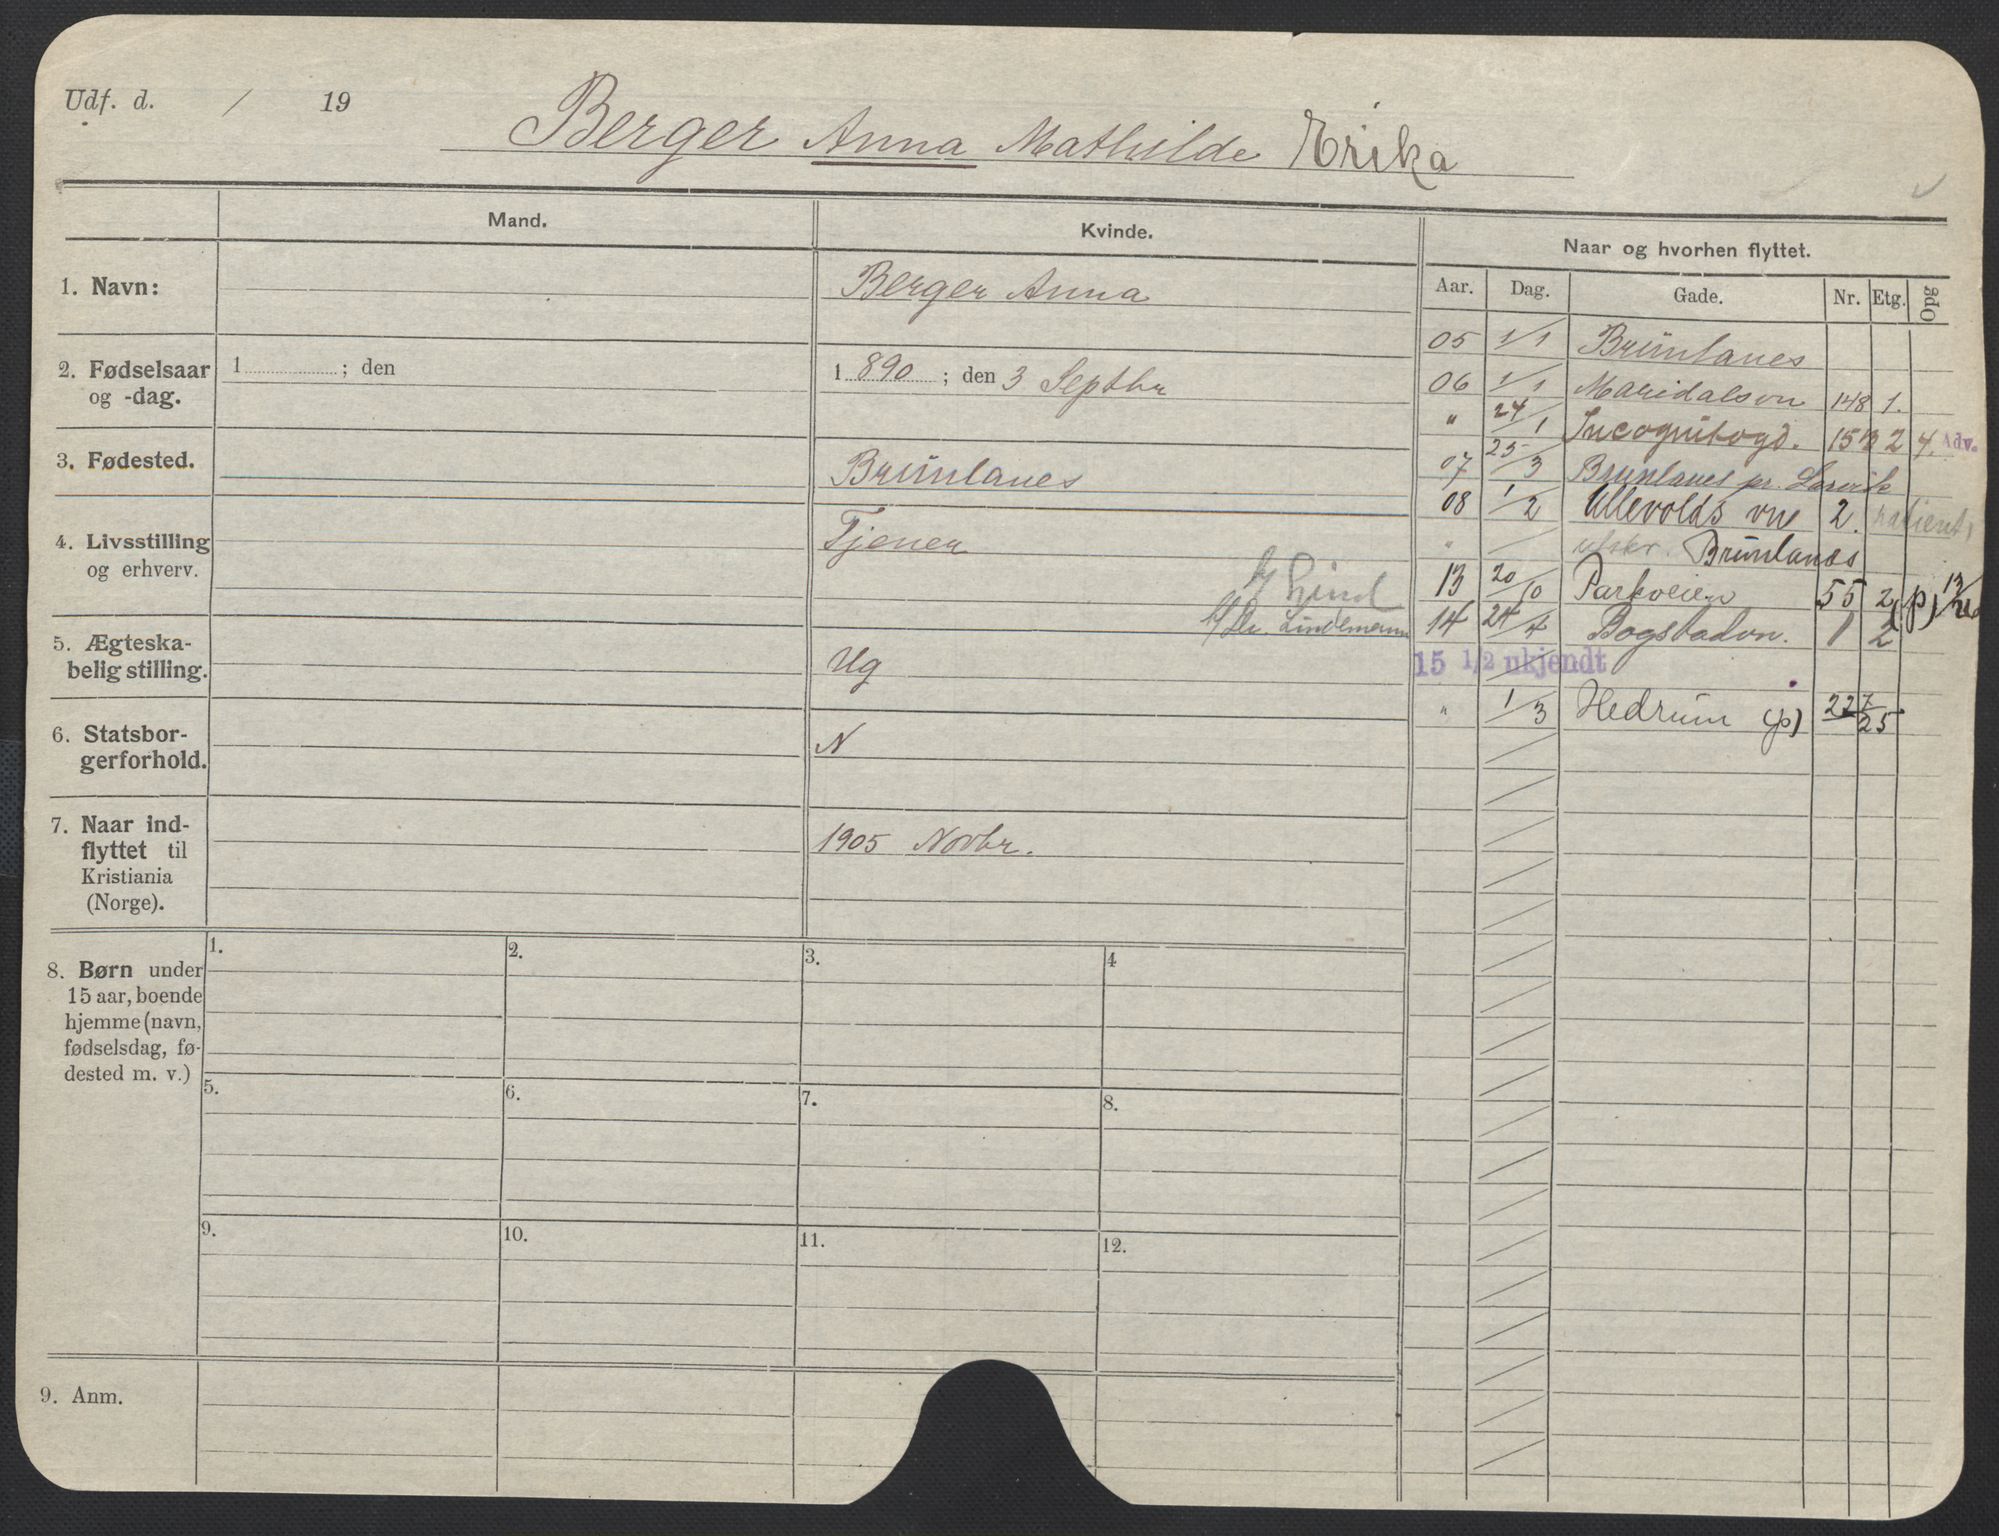 Udf. d. / 19
Berger Anna Mathilde Erika
Mand.
Kvinde.
Naar og hvorhen flyttet.
Aar. Dag. Gade. Nr. Etg. Opg
1. Navn:
Berger Anna
2. Fødselsaar
og -dag.
1 ; den
1 890 ; den 3 Septbr
3. Fødested.
Brunlanes
4. Livsstilling
og erhverv.
Tjener
Lind
Lindemann
5. Ægteska-
belig stilling.
Ug
6. Statsbor-
gerforhold.
N
7. Naar ind-
flyttet til
Kristiania
(Norge).
1905 Novbr.
05 1/1 Brunlanes
06 1/1 Maridalsvn 148 1.
" 24/1 Incognitogd. 15 2 4. Adv.
07 25/3 Brunlanes pr. Larvik
08 1/2 Ullevolds vne 2. patient
" / utskr. Brunlanes
13 20/10 Parkveien 55 2 (p)
14 24/4 Bogstadvn. 1 2
15 1/2 ukjendt
" 1/3 Hedrum (p) 227/25
8. Børn under
15 aar, boende
hjemme (navn,
fødselsdag, fø-
dested m. v.)
1. 2. 3. 4
5. 6. 7. 8.
9. 10. 11. 12.
9. Anm.